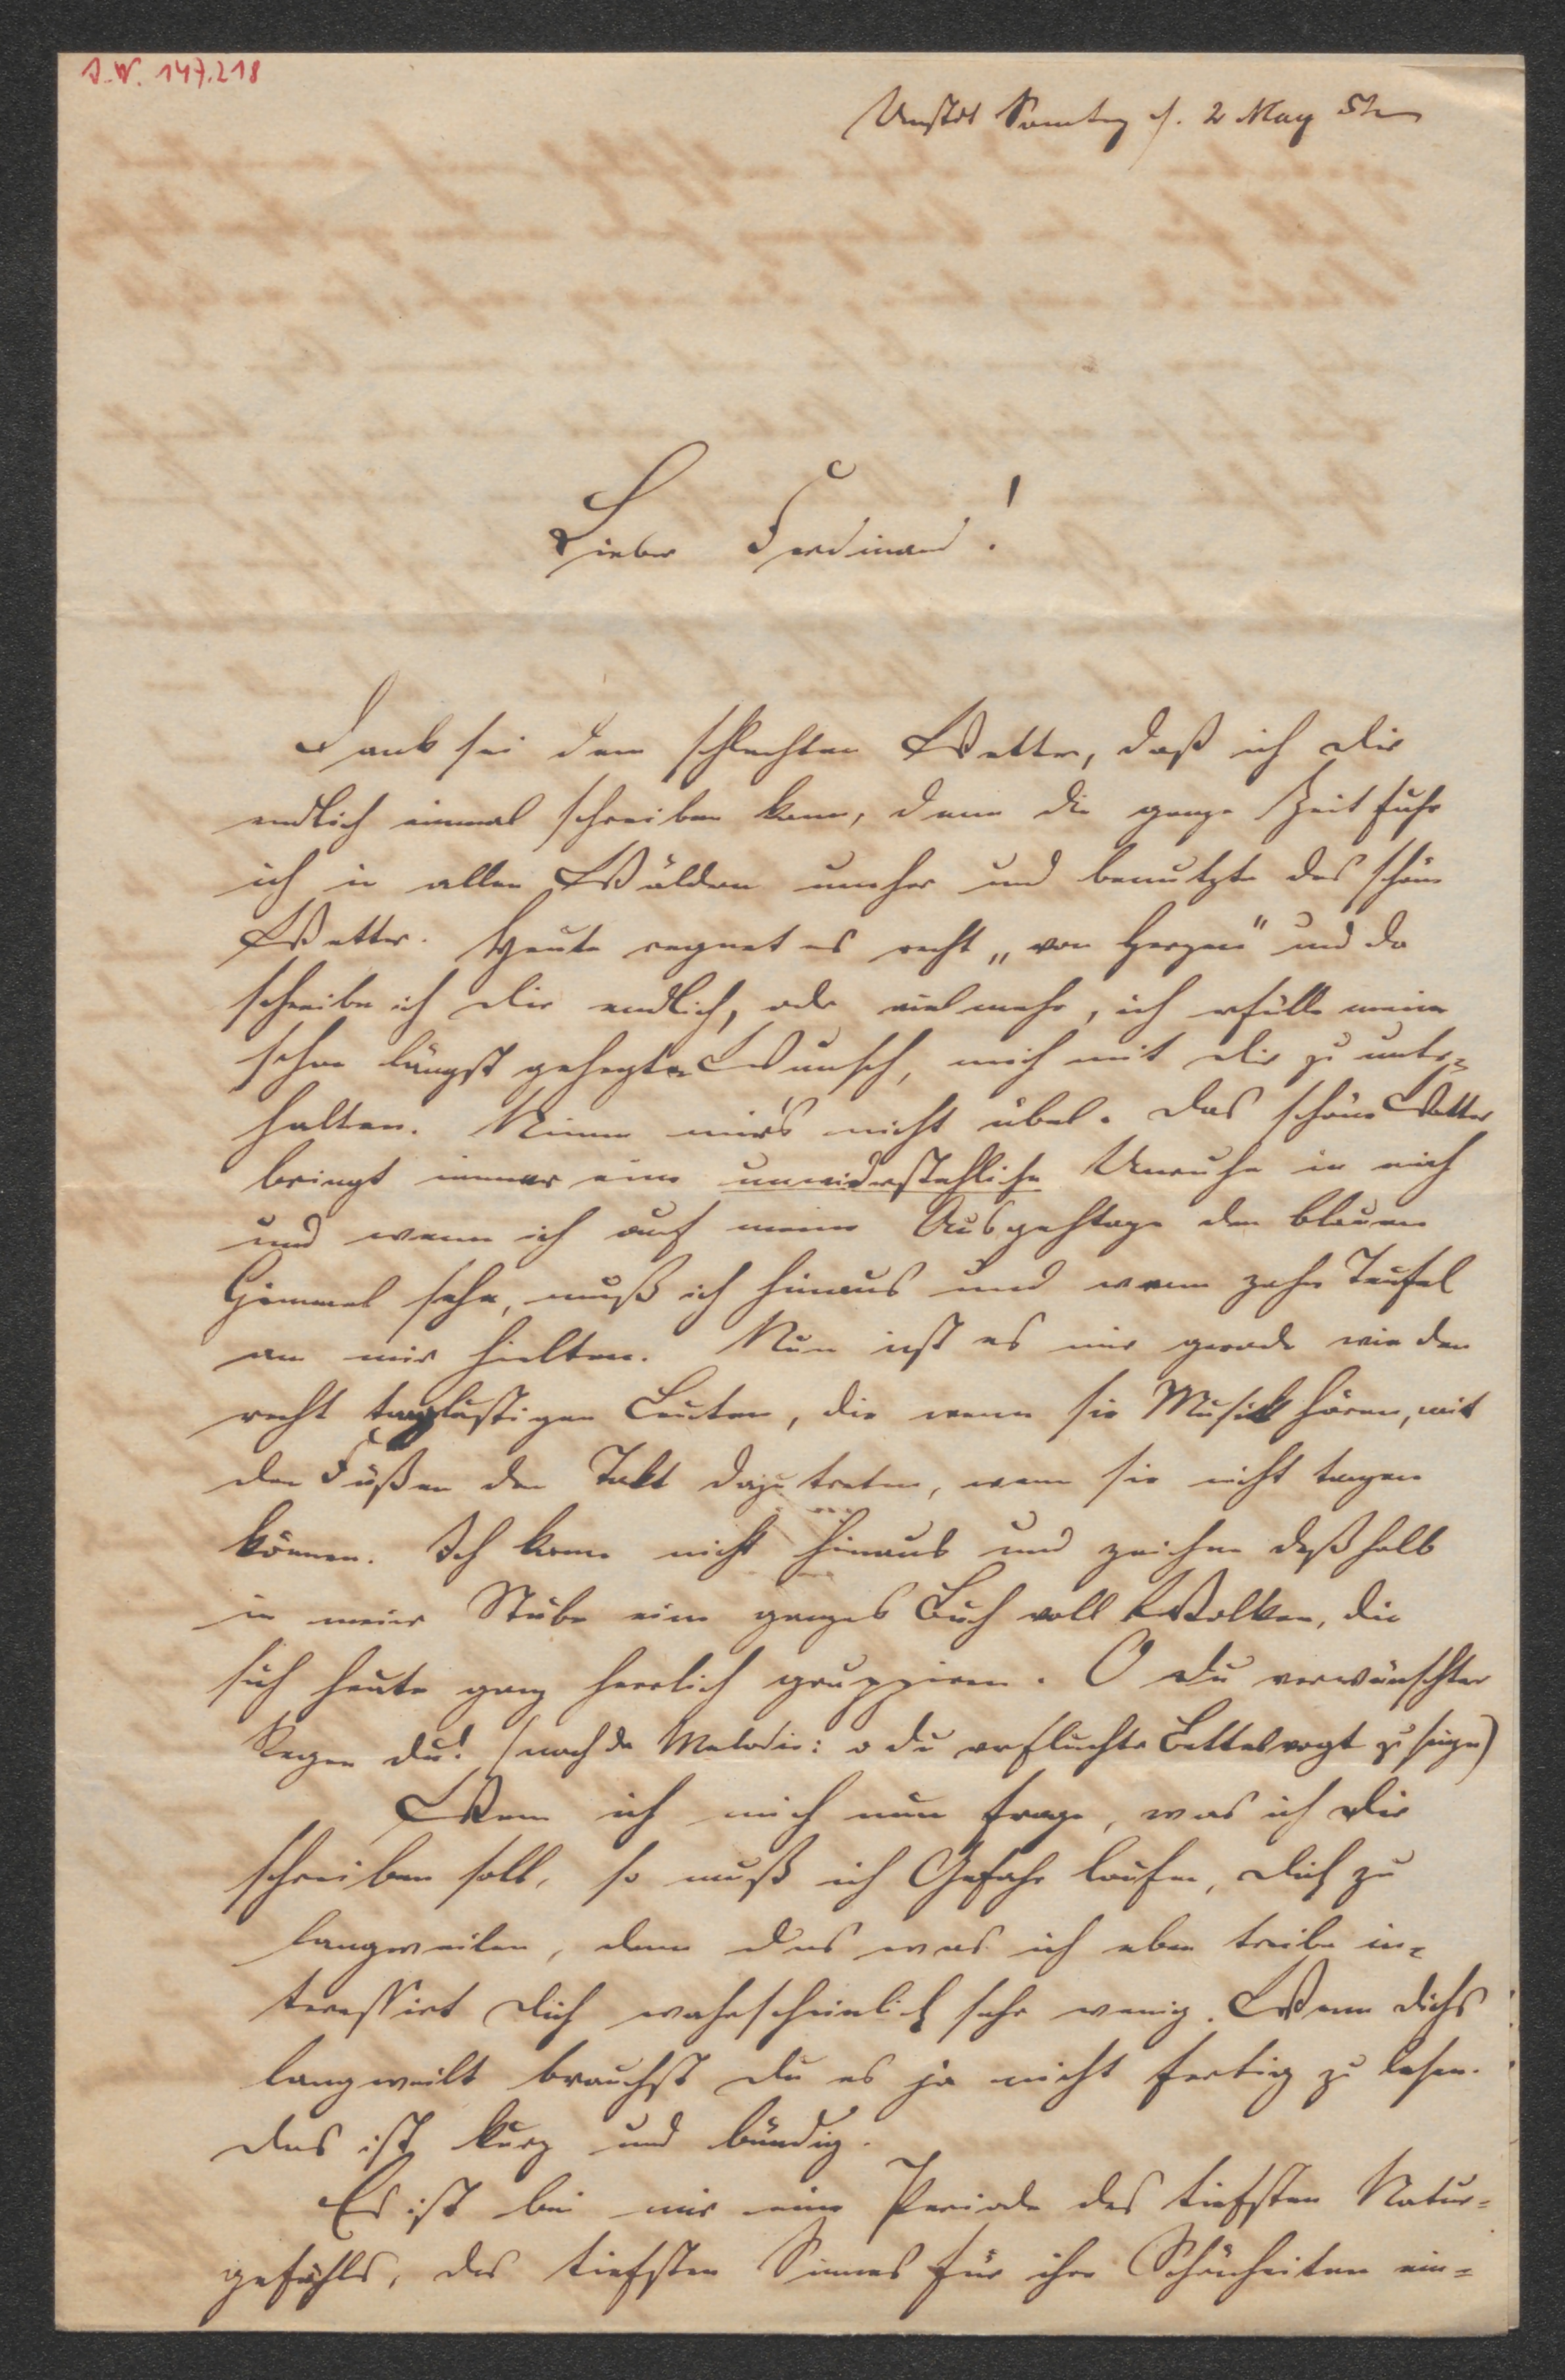 I.N. 147.218
Sonntag d. 2 May 52
Lieber Ferdinand!
Dank sei dem schlechten Wetter, daß ich Dir
endlich einmal schreiben kann, denn die ganze Zeit fuhr
ich in allen Wäldern umher und benutzte das schöne
Wetter. Heute regnet es recht „von Herzen“ und da
schreibe ich Dir endlich, oder vielmehr, ich erfülle meinen
schon längst gehegten Wunsch, mich mit Dir zu unter=
halten. Nimm mir's nicht übel. Das schöne Wetter
bringt immer eine unwiderstehliche Unruhe in mich
und wenn ich auf meine Ausgehtage den blauen
Himmel sehe, muß ich hinaus und wenn zehn Teufel
an mir hielten. Nun ist es mir gerade wie den
recht tanzlustigen Leuten, die wenn sie Musik hören, mit
den Füßen den Takt dazu treten, wenn sie nicht tanzen
können. Ich kann nicht hinaus und zeichne deßhalb
in meiner Stube ein ganzes Buch voll Wolken, die
sich heute ganz herrlich gruppiren. O du verwünschter
Regen du! (nach der Melodie: o du verfluchter Bettelvogt zu singen)
Wenn ich mich nun frage, was ich Dir
schreiben soll, so muß ich Gefahr laufen, Dich zu
langweilen, denn das was ich eben treibe in=
teressirt Dich wahrscheinlich sehr wenig. Wenn Dichs
langweilt brauchst Du es ja nicht fertig zu lesen.
Das ist kurz und bündig.
Es ist bei mir eine Periode des tiefsten Natur=
gefühls, des tiefsten Sinnes für ihre Schönheiten ein=